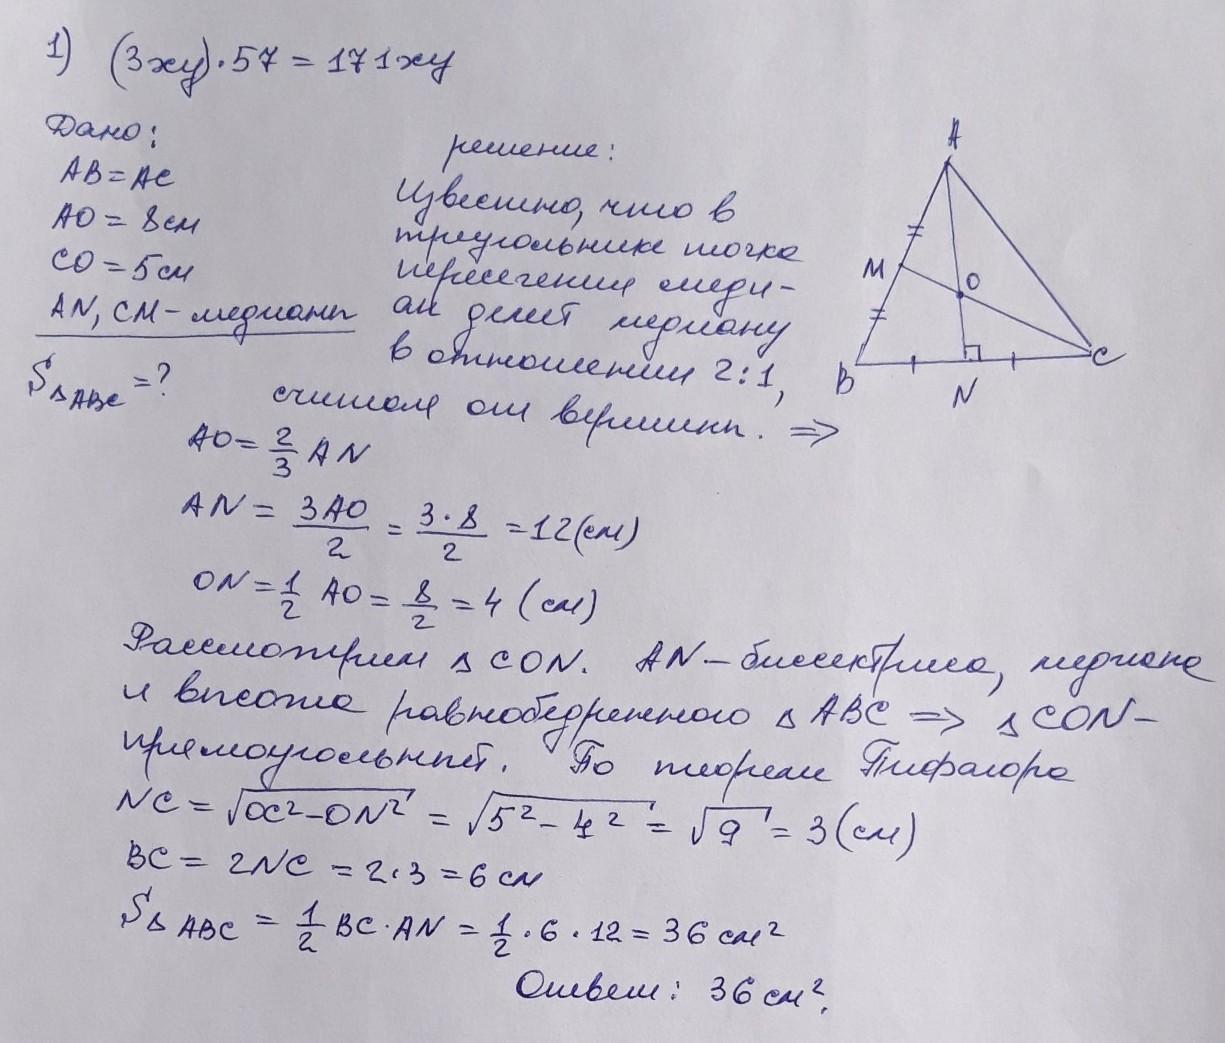 1) (3xy)·57 = 171xy
Дано:
AB = AC
AO = 8 см
CO = 5 см
AN, CM – медианы
S△ABC = ?
решение:
Известно, что в
треугольнике точка
пересечения меди-
ан делит медиану
в отношении 2:1,
считая от вершины. ⇒
A
M
O
B
N
C
AO = 2/3 AN
AN = 3AO/2 = 3·8/2 = 12 (см)
ON = 1/2 AO = 8/2 = 4 (см)
Рассмотрим △ CON. AN – биссектриса, медиана
и высота равнобедренного △ ABC ⇒ △ CON –
прямоугольный. По теореме Пифагора
NC = √(OC² – ON²) = √(5² – 4²) = √9 = 3 (см)
BC = 2NC = 2·3 = 6 см
S△ ABC = 1/2 BC·AN = 1/2 · 6 · 12 = 36 см²
Ответ: 36 см².